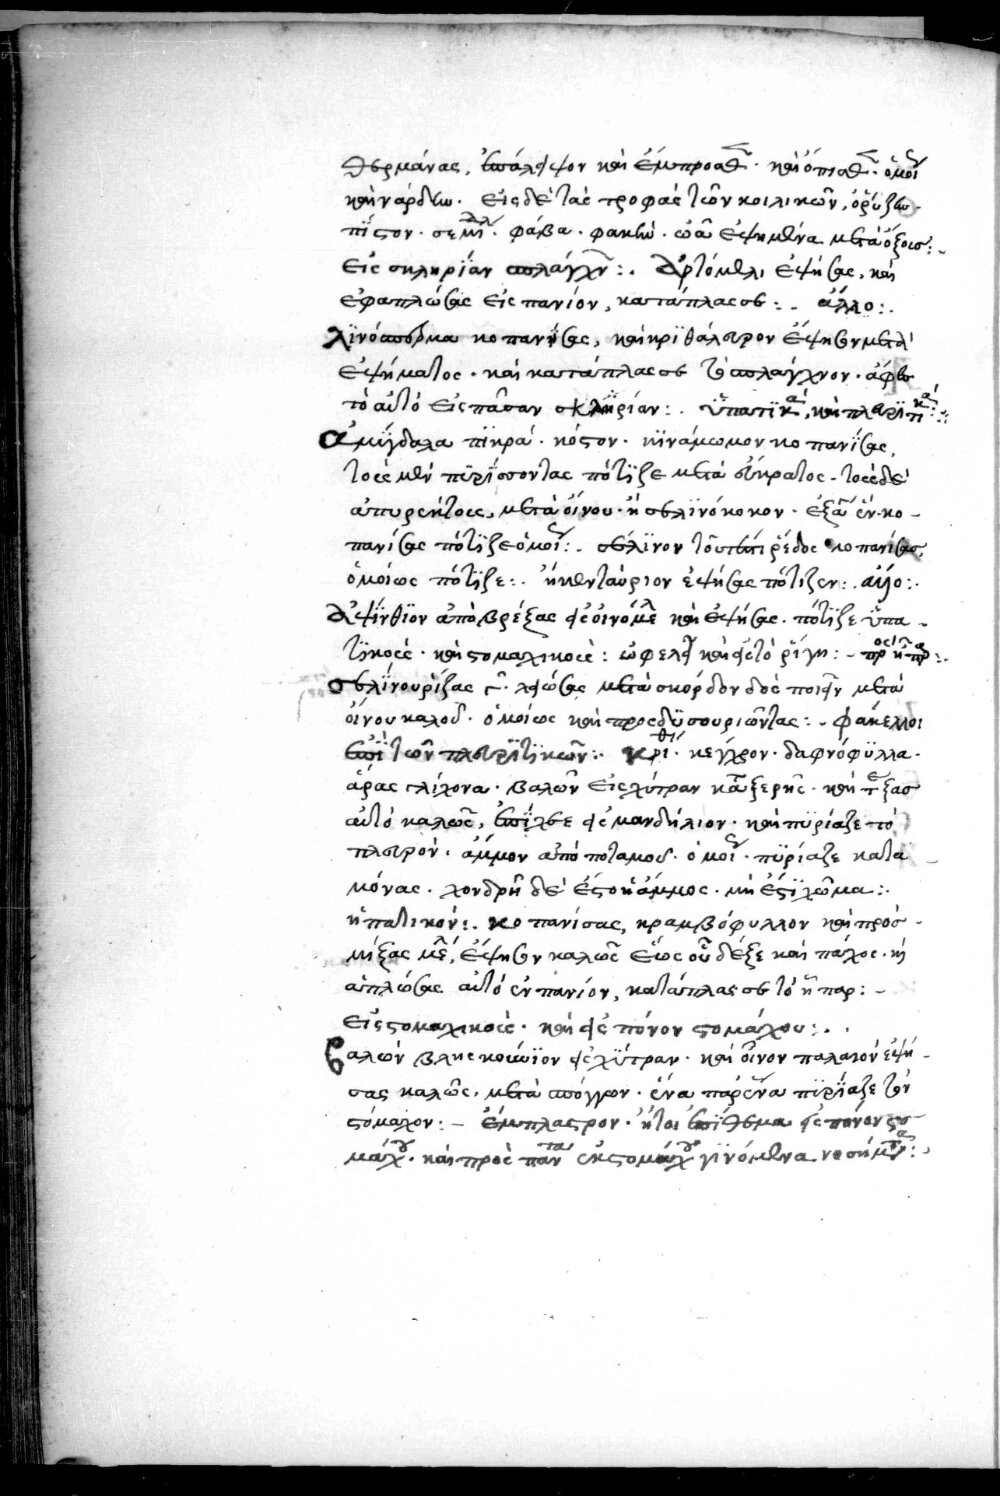 θερμάνας, ἐπάλειψον καὶ ἔμπροσθ · καὶ ὄπισθ · ὁμοί
καὶ νάρδω · εἰς δὲ τὰς τροφὰς τῶν κοιλικῶν, ὀρύζιω
πΐστον · φάβα · φακὴν · ὠὰ ἐψημένα μετὰ ὄξους :-
εἰς σκληρίαν σπλάγχν :. Ἀρτόμελι ἐψήσας, καὶ
ἐφαπλώσας εἰς πανίον, κατάπλασσε :. ἄλλο :.
λϊνόσπερμα κοπανήσας, καὶ κριθάλευρον ἕψησον μετὰ
ἐψήματος · καὶ κατάπλασσε τὸ σπλάγχνον · ἄφες
τὸ αὐτὸ εἰς πᾶσαν σκληρίαν :. ὕπατϊκὰ, καὶ πλευρϊτικά :-
ἀμύγδαλα πϊκρά · κόστον · κϊνάμωμον κοπανΐσας,
τοὺς μὲν πυρέσσοντας πότϊζε μετὰ · τοὺς δὲ
ἀπυρέκτους, μετὰ οἴνου · ἢ σελϊνόκοκον · κο-
πανίσας πότϊζε ὁμοί :. σέλϊνον κοπανίσας
ὁμοίως πότϊζε :. ἢ κενταύριον ἐψήσας πότιζεν :. ἄλλο :.
Ἀψΐνθϊον ἀποβρέξας εἰς οἰνόμελ καὶ ἐψήσας · πότϊζε ὕπα-
τϊκοὺς · καὶ στομαχικοὺς : ὠφελεῖ καὶ εἰς τὸ ῥίγη :-
σελΐνου ρίζας μετὰ σκόρδον δὸς ποιεῖν μετὰ
οἴνου καλοῦ · ὁμοίως καὶ πρὸς δϋσουριῶντας :- φάκελλοι
ἐπὶ τῶν πλευρϊτϊκῶν :. κριθί · κέγχρον · δαφνόφϋλλα ·
ἄρας γλίχονα · βαλὼν εἰς χύτραν · καὶ
αὐτὸ καλῶς, εἰς μανδήλιον · καὶ πϋρίαζε τὸ
πλευρόν · ἄμμον ἀπὸ ποταμοῦ · ὁμοί · πϋρίαζε κατα
μόνας · χονδρὴ δὲ ἔστο ἡ ἄμμος · μὴ ἔχϊ χῶμα :.
ἡπατικόν :. κοπανίσας, κραμβόφυλλον καὶ προσ-
μίξας μέλ, ἕψησον καλῶς ἕως οὗ δέξε καὶ πάχος · καὶ
ἁπλώσας αὐτὸ ἐν πανίον, κατάπλασσε τὸ ἧπαρ :-
εἰς στομαχικοὺς · καὶ εἰς πόνον στομάχου :.
βαλὼν βλησκούνϊον εἰς χύτραν · καὶ οἶνον παλαιὸν ἐψή-
σας καλῶς, μετὰ σπόγγον · ἕνα παρ᾽ ἕνα πϋρΐαζε τὸν
στόμαχον :- ἔμπλαστρον · ἤτοι ἐπΐθεμα εἰς πόνον στο
μάχου · καὶ πρὸς πάντα ἐν στομάχου γϊνόμενα νοσήματα :-